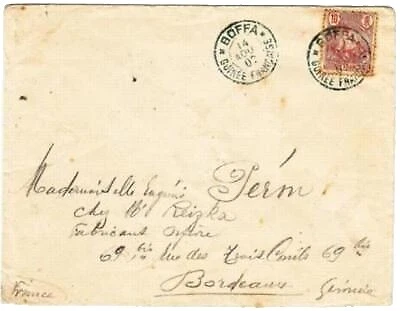 ★ BOFFA ★
14
AOU
02
GUINÉE FRANÇAISE
10
BOFFA ★
GUINÉE FRANÇ
Mademoiselle Eugénie Périn
chez Mr Reizka
Fabricant
69 bis rue des Trois Conils 69 bis
Bordeaux Gironde
France